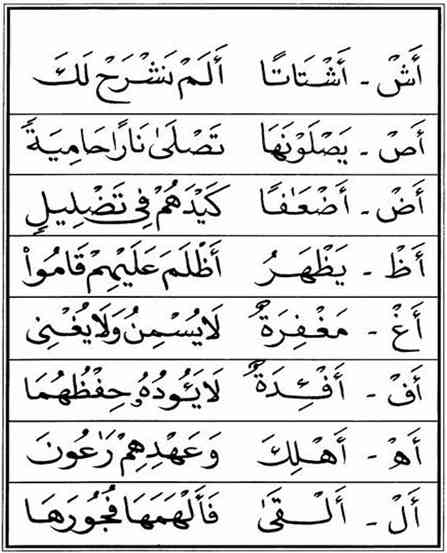 أَشْ - أَشْتَاتًا أَلَمْ نَشْرَحْ لَكَ
أَصْ - يَصْلَوْنَهَا تَصْلَىٰ نَارًا حَامِيَةً
أَضْ - أَضْعَافًا كَيْدَهُمْ فِى تَضْلِيلٍ
أَظْ - يَظْهَرُ أَظْلَمَ عَلَيْهِمْ قَامُواْ
أَغْ - مَغْفِرَةٌ لَايُسْمِنُ وَلَايُغْنِى
أَفْ - أَفْـِٔدَةٌ لَايَـُٔودُهُۥ حِفْظُهُمَا
أَهْ - أَهْلِكَ وَعَهْدِهِمْ رَٰعُونَ
أَلْ - أَلْـقَىٰ فَأَلْهَمَهَا فُجُورَهَا